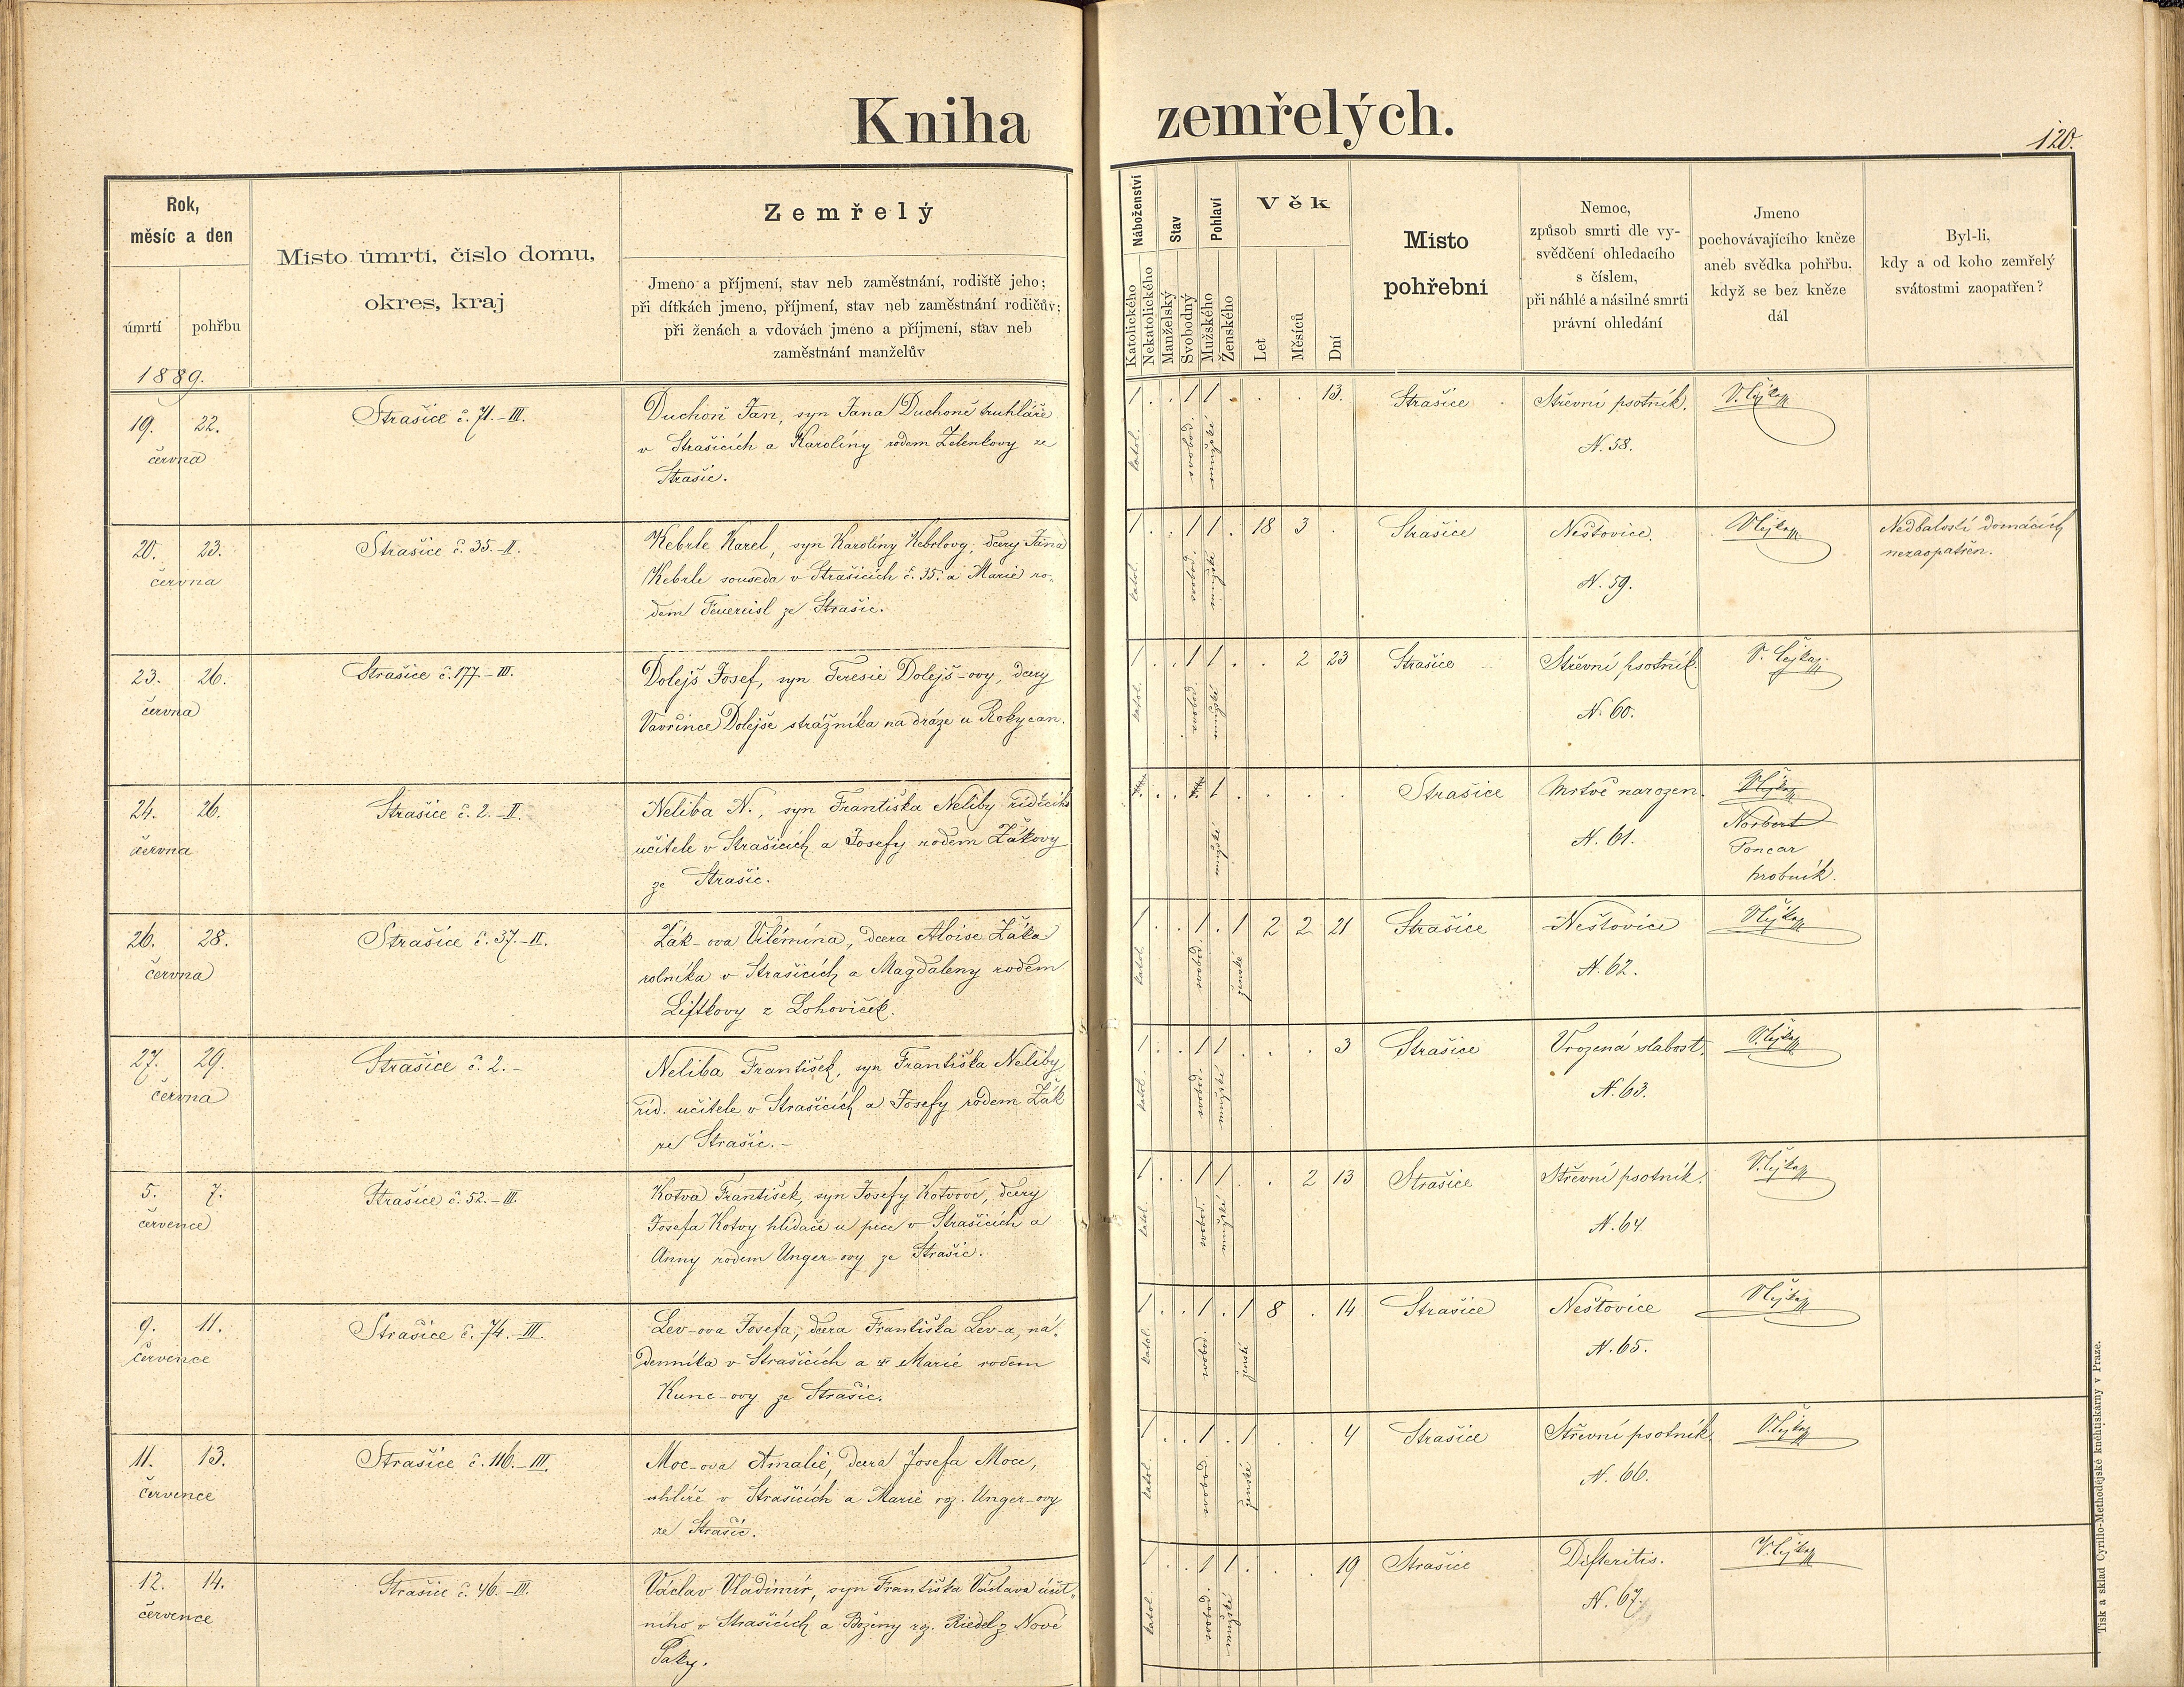 Kniha zemřelých.
120.
Rok,
měsíc a den
úmrtí
pohřbu
Místo úmrtí, číslo domu,
okres, kraj
Zemřelý
Jmeno a příjmení, stav neb zaměstnání, rodiště jeho;
při dítkách jmeno, příjmení, stav neb zaměstnání rodičův;
při ženách a vdovách jmeno a příjmení, stav neb
zaměstnání manželův
Náboženství
Katolického
Nekatolického
Stav
Manželský
Svobodný
Pohlaví
Mužského
Ženského
Věk
Let
Měsíců
Dní
Místo
pohřební
Nemoc,
způsob smrti dle vy-
svědčení ohledacího
s číslem,
při náhlé a násilné smrti
právní ohledání
Jmeno
pochovávajícího kněze
aneb svědka pohřbu,
když se bez kněze
dál
Byl-li,
kdy a od koho zemřelý
svátostmi zaopatřen?
1889.
19. 22.
června
Strašice č. 71.-III.
Duchoň Jan, syn Jana Duchoně truhláře
v Strašicích a Karolíny rodem Zelenkovy ze
Strašic.
1 . . 1 1 . . . 13.
katol. svobod. mužské
Strašice
Střevní psotník.
N. 58.
20. 23.
června
Strašice č. 35.-II.
Kebrle Karel, syn Karolíny Kebrlovy, dcery Jana
Kebrle souseda v Strašicích č. 35. a Marie ro-
dem Feuereisl ze Strašic.
1 . . 1 1 . 18 3 .
katol. svobod. mužské
Strašice
Neštovice.
N. 59.
Nedbalostí domácích
nezaopatřen.
23. 26.
června
Strašice č. 177.-III.
Dolejš Josef, syn Teresie Dolejš-ovy, dcery
Vavřince Dolejše strážníka na dráze u Rokycan.
1 . . 1 1 . . 2 23
katol. svobod. mužské
Strašice
Střevní psotník.
N. 60.
24. 26.
června
Strašice č. 2.-II.
Neliba N., syn Františka Neliby řídícího
učitele v Strašicích a Josefy rodem Žákovy
ze Strašic.
1 . . . .
mužské
Strašice
Mrtvě narozen.
N. 61.
Norbert
Poncar
hrobník.
26. 28.
června
Strašice č. 37.-II.
Žák-ova Vilémína, dcera Aloise Žáka
rolníka v Strašicích a Magdaleny rodem
Liftkovy z Lohoviček.
1 . . 1 . 1 2 2 21
katol. svobod. ženské
Strašice
Neštovice
N. 62.
27. 29.
června
Strašice č. 2.-
Neliba František, syn Františka Neliby
říd. učitele v Strašicích a Josefy rodem Žák
ze Strašic.-
1 . . 1 1 . . . 3
katol. svobod. mužské
Strašice
Vrozená slabost.
N. 63.
5. 7.
července
Strašice č. 52.-III.
Kotva František, syn Josefy Kotvové, dcery
Josefa Kotvy hlídače u pece v Strašicích a
Anny rodem Unger-ovy ze Strašic.
1 . . 1 1 . . 2 13
katol. svobod. mužské
Strašice
Střevní psotník.
N. 64
9. 11.
července
Strašice č. 74.-III.
Lev-ova Josefa, dcera Františka Lev-a, ná-
denníka v Strašicích a Marie rodem
Kunc-ovy ze Strašic.
1 . . 1 . 1 8 . 14
katol. svobod. ženské
Strašice
Neštovice
N. 65.
11. 13.
července
Strašice č. 116.-III.
Moc-ova Amalie, dcera Josefa Moce,
uhlíře v Strašicích a Marie roz. Unger-ovy
ze Strašic.
1 . . 1 . 1 . . 4
katol. svobod. ženské
Strašice
Střevní psotník.
N. 66.
12. 14.
července
Strašice č. 46.-III.
Václav Vladimír, syn Františka Václava účet-
ního v Strašicích a Boženy roz. Riedel z Nové
Paky.
1 . . 1 1 . . . 19
katol. svobod. mužské
Strašice
Difteritis.
N. 67.
Tisk a sklad Cyrillo-Methodějské kněhtiskárny v Praze.